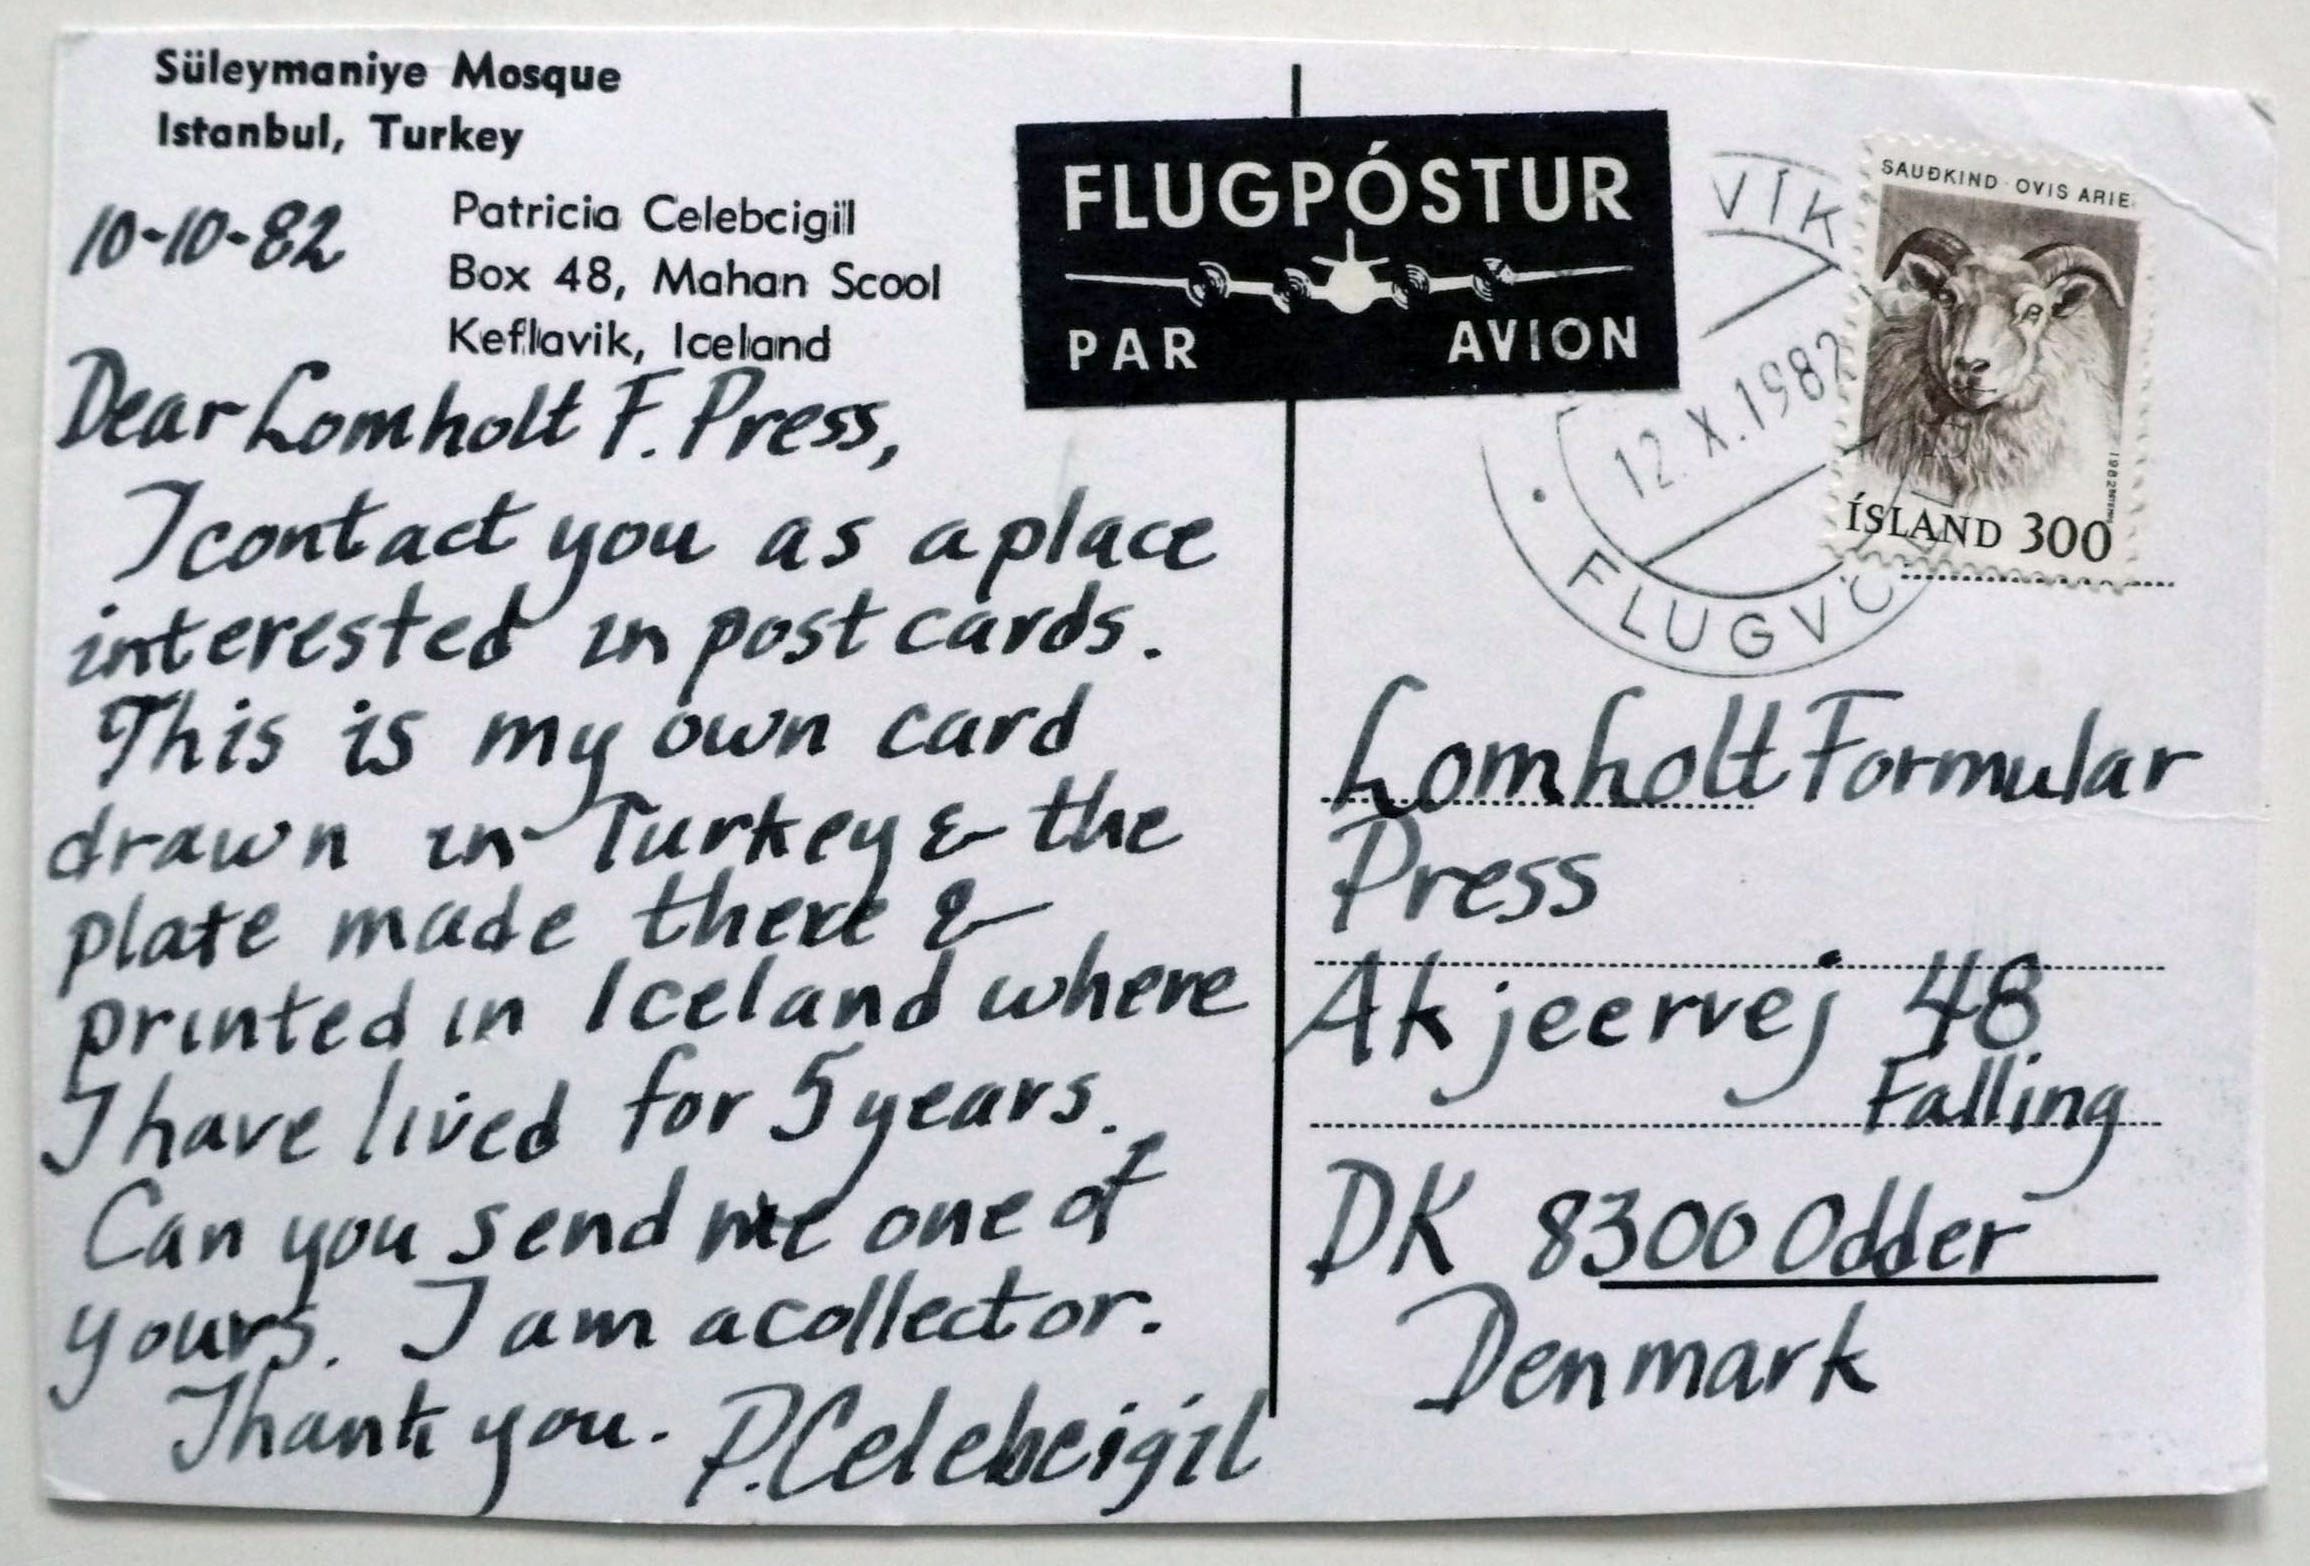 Süleymaniye Mosque
Istanbul, Turkey
10-10-82
Patricia Celebcigil
Box 48, Mahan Scool
Keflavik, Iceland
Dear Lomholt F. Press,
I contact you as a place
interested in post cards.
This is my own card
drawn in Turkey & the
plate made there &
printed in Iceland where
I have lived for 5 years.
Can you send me one of
yours. I am a collector.
Thank you. P. Celebcigil
FLUGPÓSTUR
PAR AVION
VÍK
12. X. 1982
FLUGVÖ
SAUÐKIND · OVIS ARIE
ÍSLAND 300
Lomholt Formular
Press
Akjeervej 48
Falling
DK 8300 Odder
Denmark